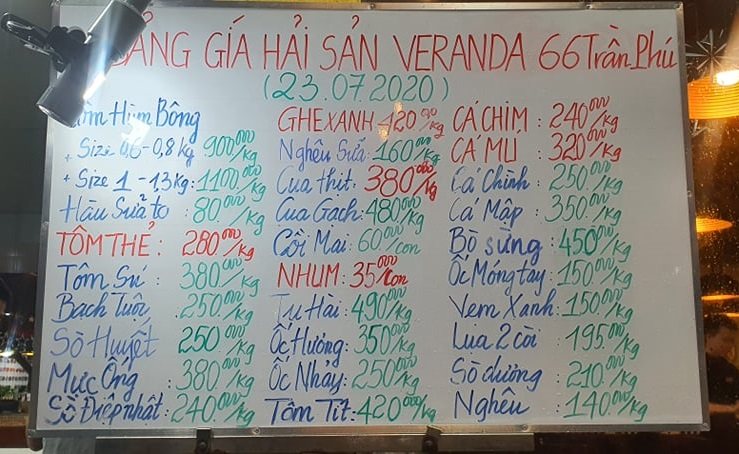 BẢNG GÍA HẢI SẢN VERANDA 66 Trần Phú
(23.07.2020)
Tôm Hùm Bông
+ Size 0,6-0,8 kg 900.000/kg
+ Size 1 - 1,3 kg: 1100.000/kg
Hàu Sữa to : 80.000/kg
TÔM THẺ : 280.000/kg
Tôm Sú : 380.000/kg
Bạch Tuộc : 250.000/kg
Sò Huyết 250.000/kg
Mực Ống : 380.000/kg
Sò Điệp nhật : 240.000/kg
GHẸ XANH 420.000/kg
Nghêu Sữa : 160.000/kg
Cua thịt : 380.000/kg
Cua Gạch : 480.000/kg
Cồi Mai : 60.000/con
NHUM : 35.000/con
Tu Hài : 490.000/kg
Ốc Hương : 350.000/kg
Ốc Nhảy : 250.000/kg
Tôm Tít : 420.000/kg
CÁ CHIM : 240.000/kg
CÁ MÚ : 320.000/kg
Cá Chình : 250.000/kg
Cá Mập : 350.000/kg
Bò sừng : 450.000/kg
Ốc Móng tay : 150.000/kg
Vẹm Xanh : 150.000/kg
Lụa 2 còi : 195.000/kg
Sò dương : 210.000/kg
Nghêu : 140.000/kg